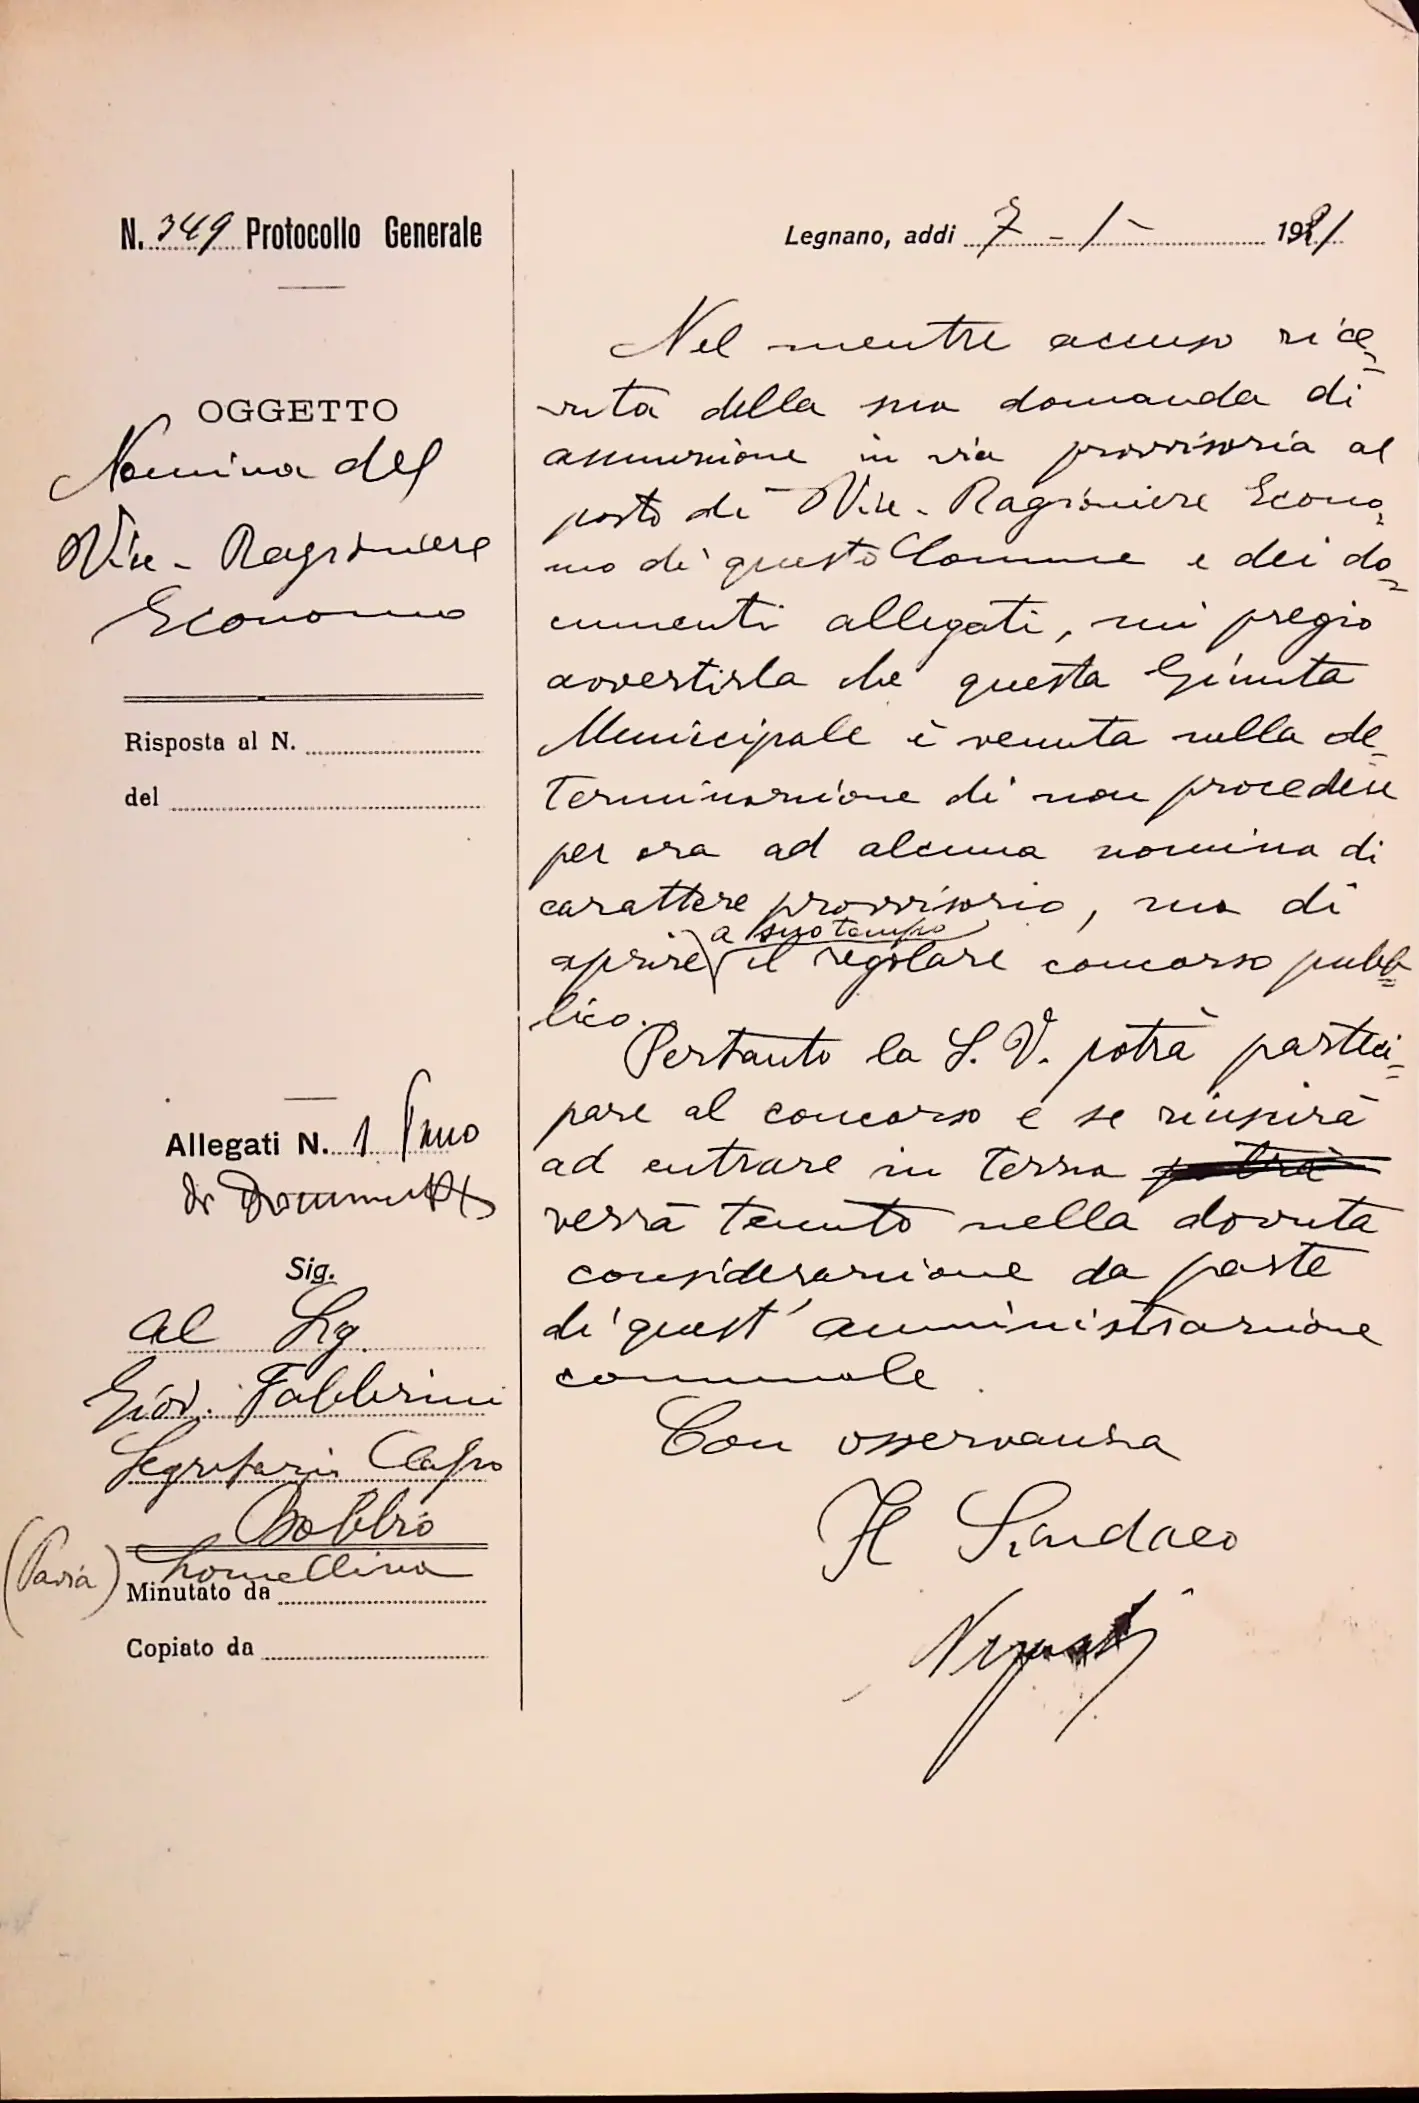 N. 349 Protocollo Generale
OGGETTO
Nomina del
Vice-Ragioniere
Economo
Risposta al N.
del
Allegati N. 1
di Documenti
Sig.
Al Sig.
Giov. Fabbrini
Segretario Capo
Robbio
(Pavia) Lomellina
Minutato da
Copiato da
Legnano, addi 7 - 1 - 1921
Nel mentre accuso rice-
vuta della sua domanda di
assunzione in via provvisoria al
posto di Vice-Ragioniere Econo-
mo di questo Comune e dei do-
cumenti allegati, mi pregio
avvertirla che questa Giunta
Municipale è venuta nella de-
terminazione di non procedere
per ora ad alcuna nomina di
carattere provvisorio, ma di
a suo tempo
aprire il regolare concorso pubb-
lico.
Pertanto la S. V. potrà parteci-
pare al concorso e se riuscirà
ad entrare in terna potrà
verrà tenuto nella dovuta
considerazione da parte
di quest' amministrazione
comunale.
Con osservanza
Il Sindaco